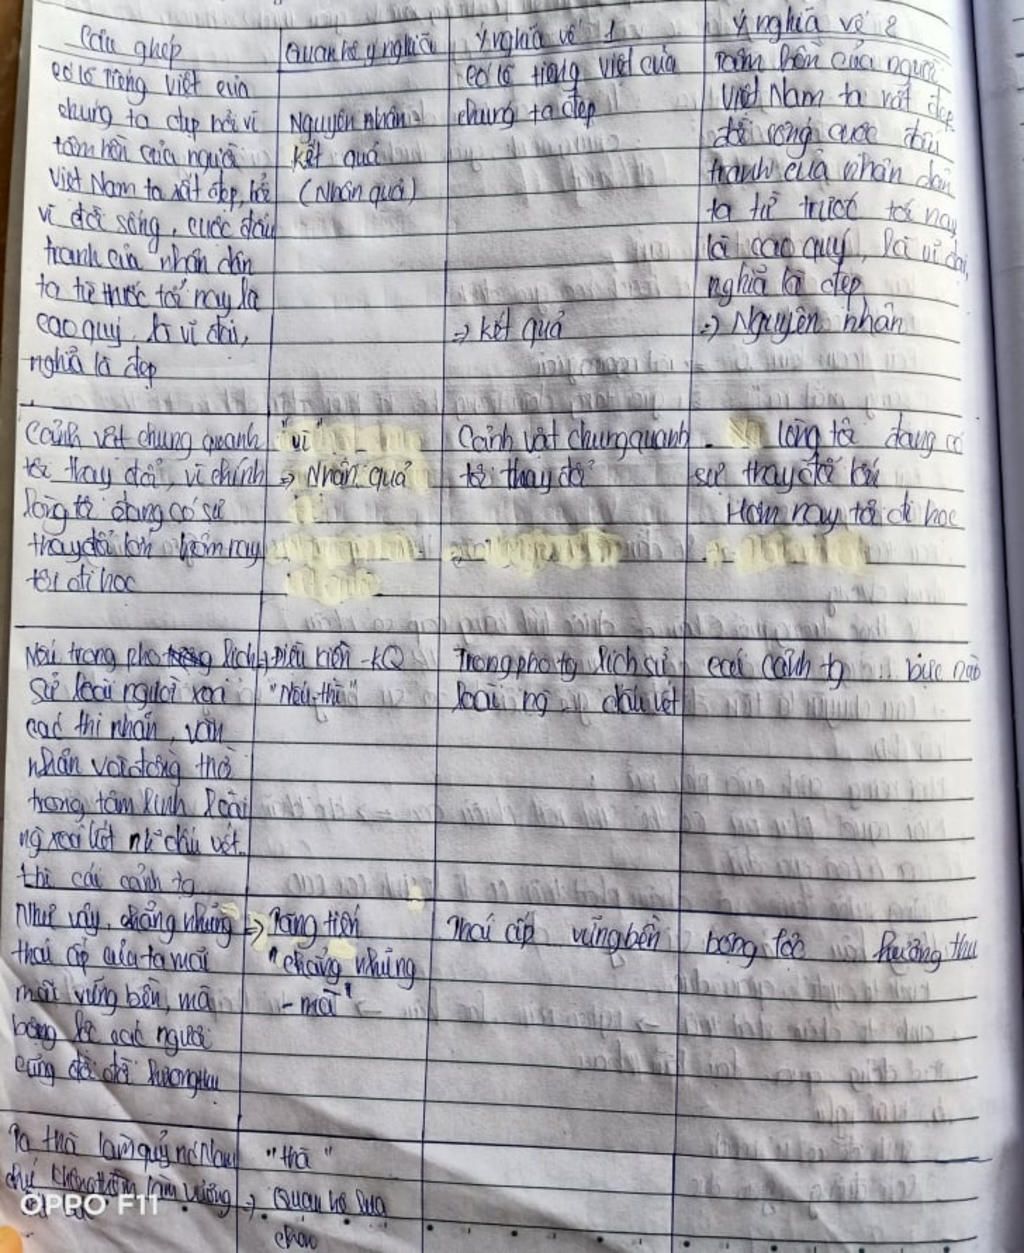 Câu ghép
Quan hệ ý nghĩa
Ý nghĩa vế 1
Ý nghĩa vế 2
có lẽ tiếng Việt của
chúng ta đẹp bởi vì
tâm hồn của người
Việt Nam ta rất đẹp, bởi
vì đời sống, cuộc đấu
tranh của nhân dân
ta từ trước tới nay là
cao quý, là vĩ đại,
nghĩa là đẹp
Nguyên nhân -
kết quả
(Nhân quả)
có lẽ tiếng việt của
chúng ta đẹp
=> kết quả
tâm hồn của người
Việt Nam ta rất đẹp
đời sống cuộc đấu
tranh của nhân dân
ta từ trước tới nay
là cao quý, là vĩ đại,
nghĩa là đẹp
=> Nguyên nhân
Cảnh vật chung quanh
tôi thay đổi, vì chính
lòng tôi đang có sự
thay đổi lớn hôm nay
tôi đi học
"vì"
=> Nhân quả
Cảnh vật chung quanh
tôi thay đổi
lòng tôi đang có
sự thay đổi lớn
Hôm nay tôi đi học
Nếu trong pho lịch
sử loài người xoá
các thi nhân, văn
nhân và đồng thời
trong tâm linh loài
ng xoá hết những dấu vết
thì cái cảnh tg
Điều kiện - KQ
"Nếu - thì"
Trong pho tg lịch sử
loài ng ... dấu vết
cái cảnh tg ... bực nào
Như vậy, chẳng những
thái ấp của ta mãi
mãi vững bền, mà
bổng lộc các người
cũng đời đời hưởng thụ
=> Tăng tiến
"chẳng những
- mà"
Thái ấp vững bền
bổng lộc hưởng thụ
Ta thà làm quỷ nước Nam
chứ không thèm làm vương
"thà"
=> Quan hệ lựa
chọn
OPPO F11